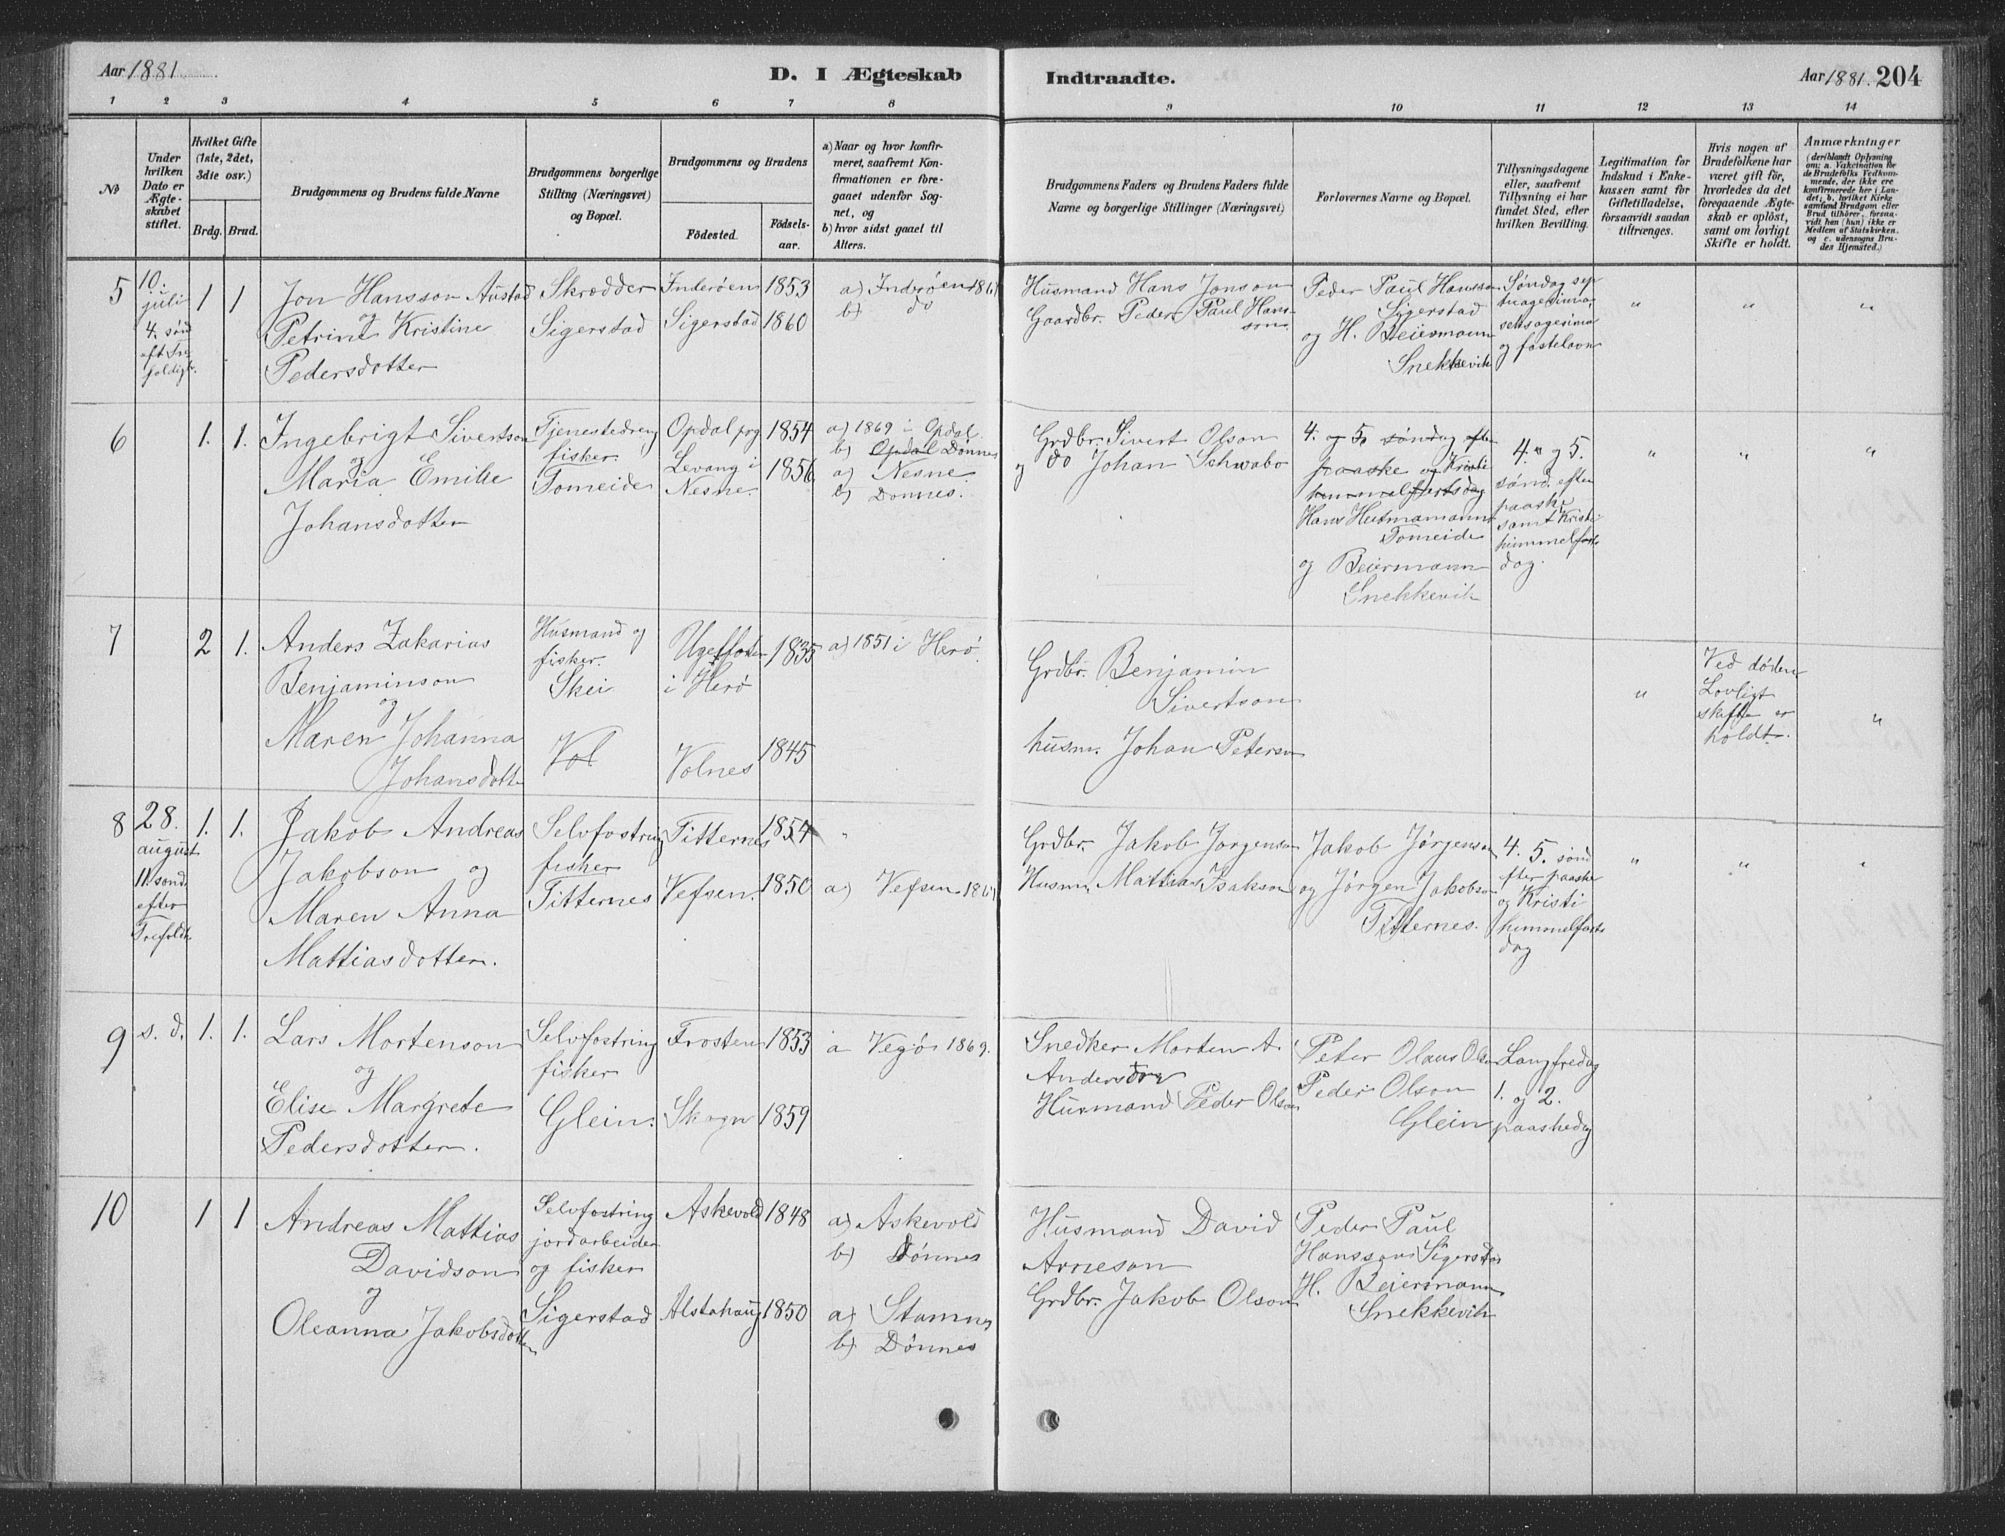 Aar 1881
D. I Ægteskab
1 2 3 4 5 6 7 8
No
Under hvilken Dato er Ægteskabet stiftet.
Hvilket Gifte (1ste, 2det, 3die osv.)
Brdg. Brud.
Brudgommens og Brudens fulde Navne
Brudgommens borgerlige Stilling (Næringsvei) og Bopæl.
Brudgommens og Brudens
Fødested.
Fødselsaar.
a) Naar og hvor konfirmeret, saafremt Konfirmationen er foregaaet udenfor Sognet, og
b) hvor sidst gaaet til Alters.
Indtraadte.
Aar 1881. 204
9 10 11 12 13 14
Brudgommens Faders og Brudens Faders fulde Navne og borgerlige Stillinger (Næringsvei)
Forlovernes Navne og Bopæl.
Tillysningsdagene eller, saafremt Tillysning ei har fundet Sted, efter hvilken Bevilling.
Legitimation for Indskud i Enkekassen samt for Giftetilladelse, forsaavidt saadan tiltrænges.
Hvis nogen af Brudefolkene har været gift før, hvorledes da det foregaaende Ægteskab er opløst, samt om lovligt Skifte er holdt.
Anmærkninger
(deriblandt Oplysning om: a. Vakcination for de Brudefolks Vedkommende, der ikke ere konfirmerede her i Landet; b. hvilket Kirkesamfund Brudgom eller Brud tilhører, forsaavidt han (hun) ikke er Medlem af Statskirken, og c. udensogns Brudes Hjemsted.)
5 10. juli 4. sønd eft Trefoldigh. 1 1
Jon Hansson Austad
og
Petrine Kristine
Pedersdotter
Skrædder
Sigerstad
Inderøen 1853
Sigerstad 1860
a) Inderøen
b) do
Husmand Hans Jonson
Gaardbr. Peder Paul Hansson
Peder Paul Hansson
Sigerstad
og H. Beiermann
Snekkevik
Søndag septuagesima
sexagesima
og fastelavn
" " "
6 1. 1.
Ingebrigt Sivertson
og
Maria Emilie
Johansdotter
Tjenestedreng
fisker.
Tomeide
Opdal prg 1854
Levang i
Nesne. 1856
a) 1869 i Opdal.
b) Opdal Dønnes
a) Nesne
b) Dønnes.
Grdbr. Sivert Olson
og do Johan Schwabo
4. og 5. søndag efter
paaske og Kristi
himmelfartsdag
Tomeide
og Beiermann
Snekkevik
4. og 5.
sønd. efter
paaske
samt Kristi
himmelfarts
dag.
" " "
7 2 1.
Anders Zakarias
Benjaminson
og
Maren Johanna
Johansdotter
Husmand og
fisker.
Skei
Vol
i Herø 1835
Volnes 1845
a) 1851 i Herø
Grdbr. Benjamin
Sivertson
husm. Johan Peterson
"
Ved døden
Lovligt
skifte er
holdt.
"
8 28. august 11. sønd. efter Trefoldh. 1. 1.
Jakob Andreas
Jakobson og
Maren Anna
Mattiasdotter.
Selvfostring
fisker
Titternes
Titternes 1854
Vefsen. 1850
"
a) Vefsen
Grdbr. Jakob Jørgenson
Husm. Mattias Isakson
Jakob Jørgenson
og Jørgen Jakobson
Titternes.
4. 5. sønd
efter paaske
og Kristi
himmelfarts
dag
" " "
9 s. d. 1. 1.
Lars Mortenson
og
Elise Margrete
Pedersdotter.
Selvfostring
fisker
Glein.
Frosten 1853
Skogn 1859
a Vegø 1869.
Snedker Morten A.
Husmand Peder Olson
Peter Olaus Olson
Peder Olson
Glein
Langfredag
1. og 2.
paaskedag
10 1 1
Andreas Mattias
Davidson
og
Oleanna Jakobsdotter
Selvfostring
jordarbeider
og fisker
Sigerstad
Askevold 1848
Alstahaug 1850
a) Askevold
b) Dønnes
a) Stamnes
b) Dønnes
Husmand David
Arneson
Grdbr. Jakob Olson
Peder Paul
Hansson Sigerstad
H. Beiermann
Snekkevik